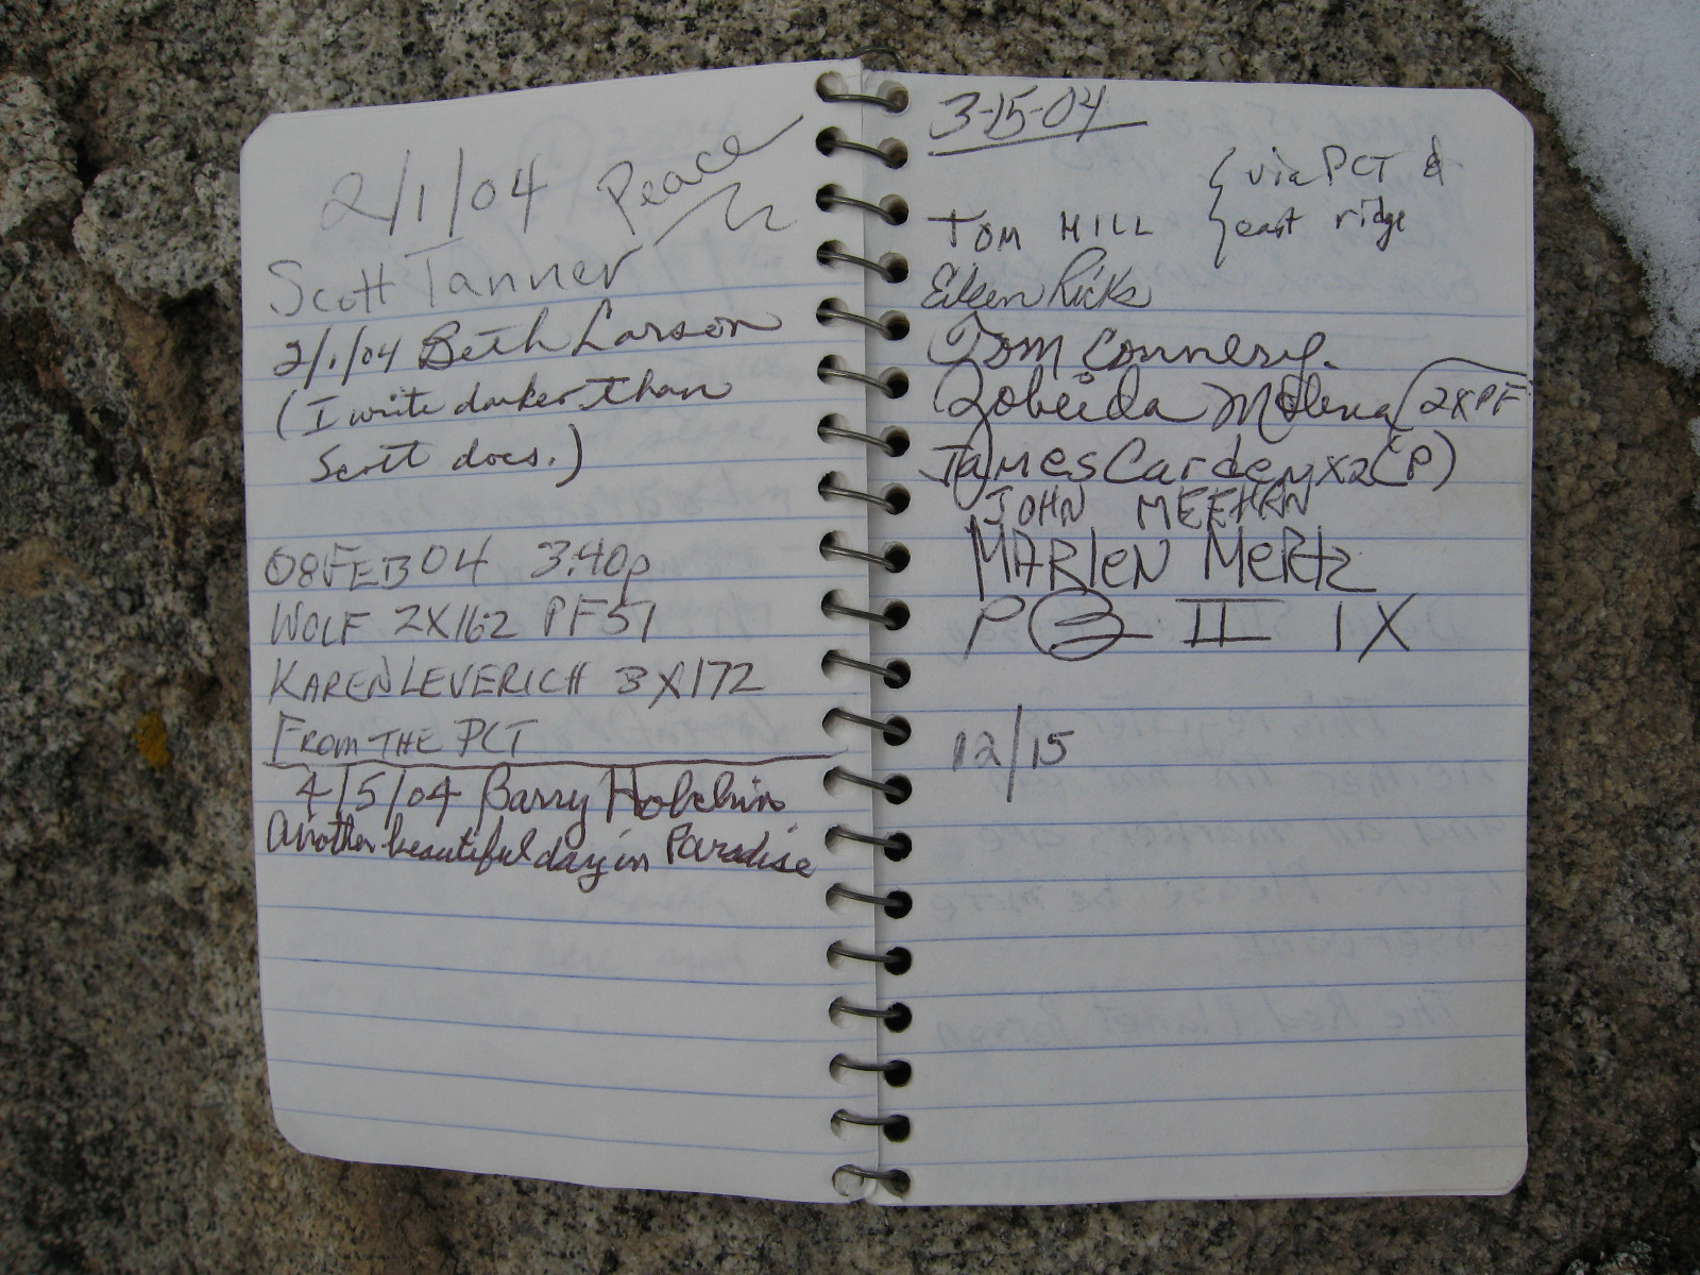 2/1/04 Peace
Scott Tanner
2/1/04 Beth Larson
(I write darker than
Scott does.)
08FEB04 3:40p
WOLF 2X162 PF51
KAREN LEVERICH 3X172
FROM THE PCT
4/5/04 Barry
Another beautiful day in Paradise
3-15-04
via PCT &
TOM HILL east ridge
Eileen Ricks
Tom Connery.
Zobeida Molina (2XPF
James Carden X2(P)
JOHN MEEHAN
MARIEN MERTZ
P 3 II IX
12/15